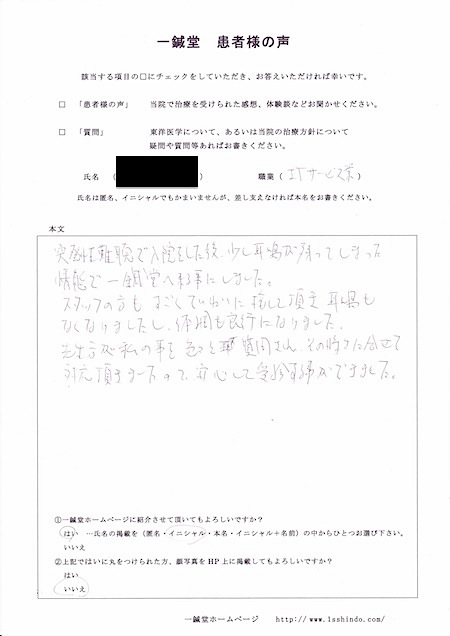 一鍼堂 患者様の声
該当する項目の□にチェックをしていただき、お答えいただければ幸いです。
□ 「患者様の声」 当院で治療を受けられた感想、体験談などお聞かせください。
□ 「質問」 東洋医学について、あるいは当院の治療方針について
疑問や質問等あればお書きください。
氏名 ( ) 職業 ( ITサービス業
氏名は匿名、イニシャルでもかまいませんが、差し支えなければ本名をお書きください。
本文
突発性難聴で入院をした後、少し耳鳴が残ってしまった
状態で一鍼堂へ来る事にしました。
スタッフの方も すごくていねいに 接して頂き 耳鳴も
なくなりましたし、体調も良好になりました。
先生方が私の事を 質問され、その時々に合せて
対応頂きましたので、安心して受診する事ができました。
①一鍼堂ホームページに紹介させて頂いてもよろしいですか？
はい …氏名の掲載を（匿名・イニシャル・本名・イニシャル＋名前）の中からひとつお選び下さい。
いいえ
②上記ではいに丸をつけられた方、顔写真をHP上に掲載してもよろしいですか？
はい
いいえ
一鍼堂ホームページ http://www.1sshindo.com/